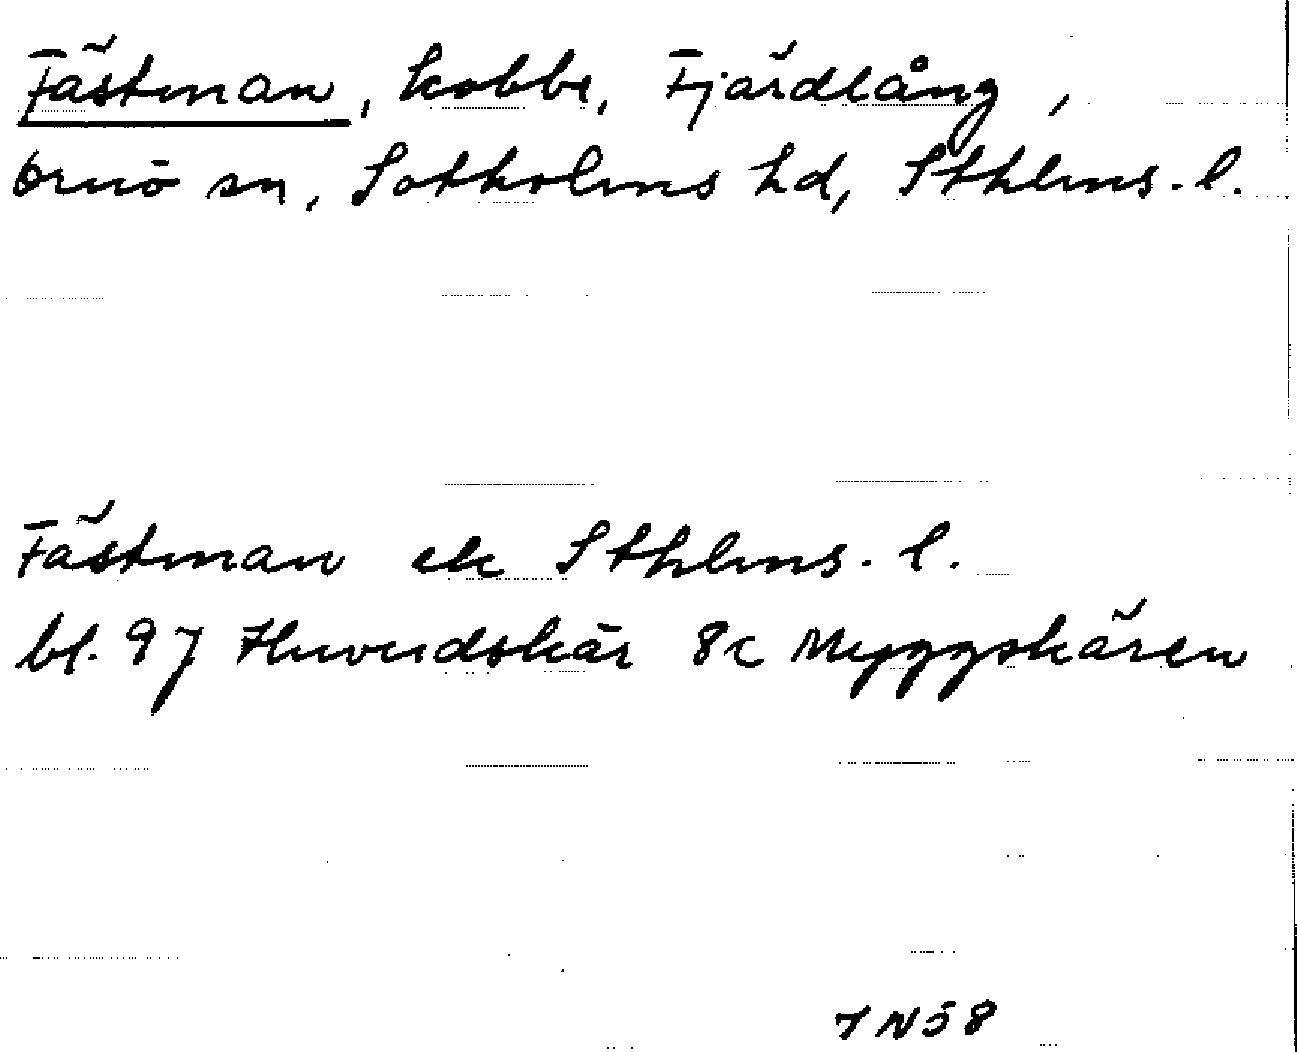 Fästman, kobbe, Fjärdlång,
Ornö sn, Sotholms hd, Sthlms. l.
Fästman ek Sthlms. l.
bl. 97 Huvudskär 8c Myggskären
7 NÖ 8